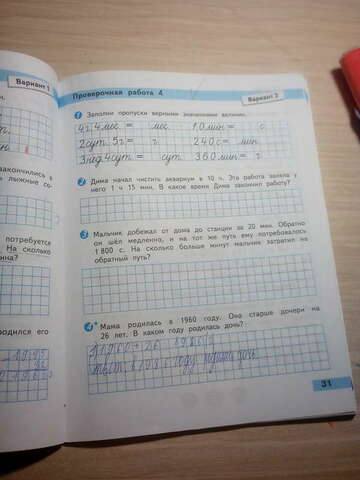 Вариант 1
Проверочная работа 4
Вариант 2
1 Заполни пропуски верными значениями величин.
4г. 4 мес = мес 10 мин = с
2 сут. 5 г = г. 240 с = мин
3 нед 4 сут = сут. 360 мин = г.
2 Дима начал чистить аквариум в 10 ч. Эта работа заняла у
него 1 ч 15 мин. В какое время Дима закончил работу?
3 Мальчик добежал от дома до станции за 20 мин. Обратно
он шёл медленно, и на тот же путь ему потребовалось
1 800 с. На сколько больше минут мальчик затратил на
обратный путь?
4* Мама родилась в 1960 году. Она старше дочери на
26 лет. В каком году родилась дочь?
1960+26
году родилась дочь
31
закончились в
лыжные со-
потребуется
На сколько
родился его